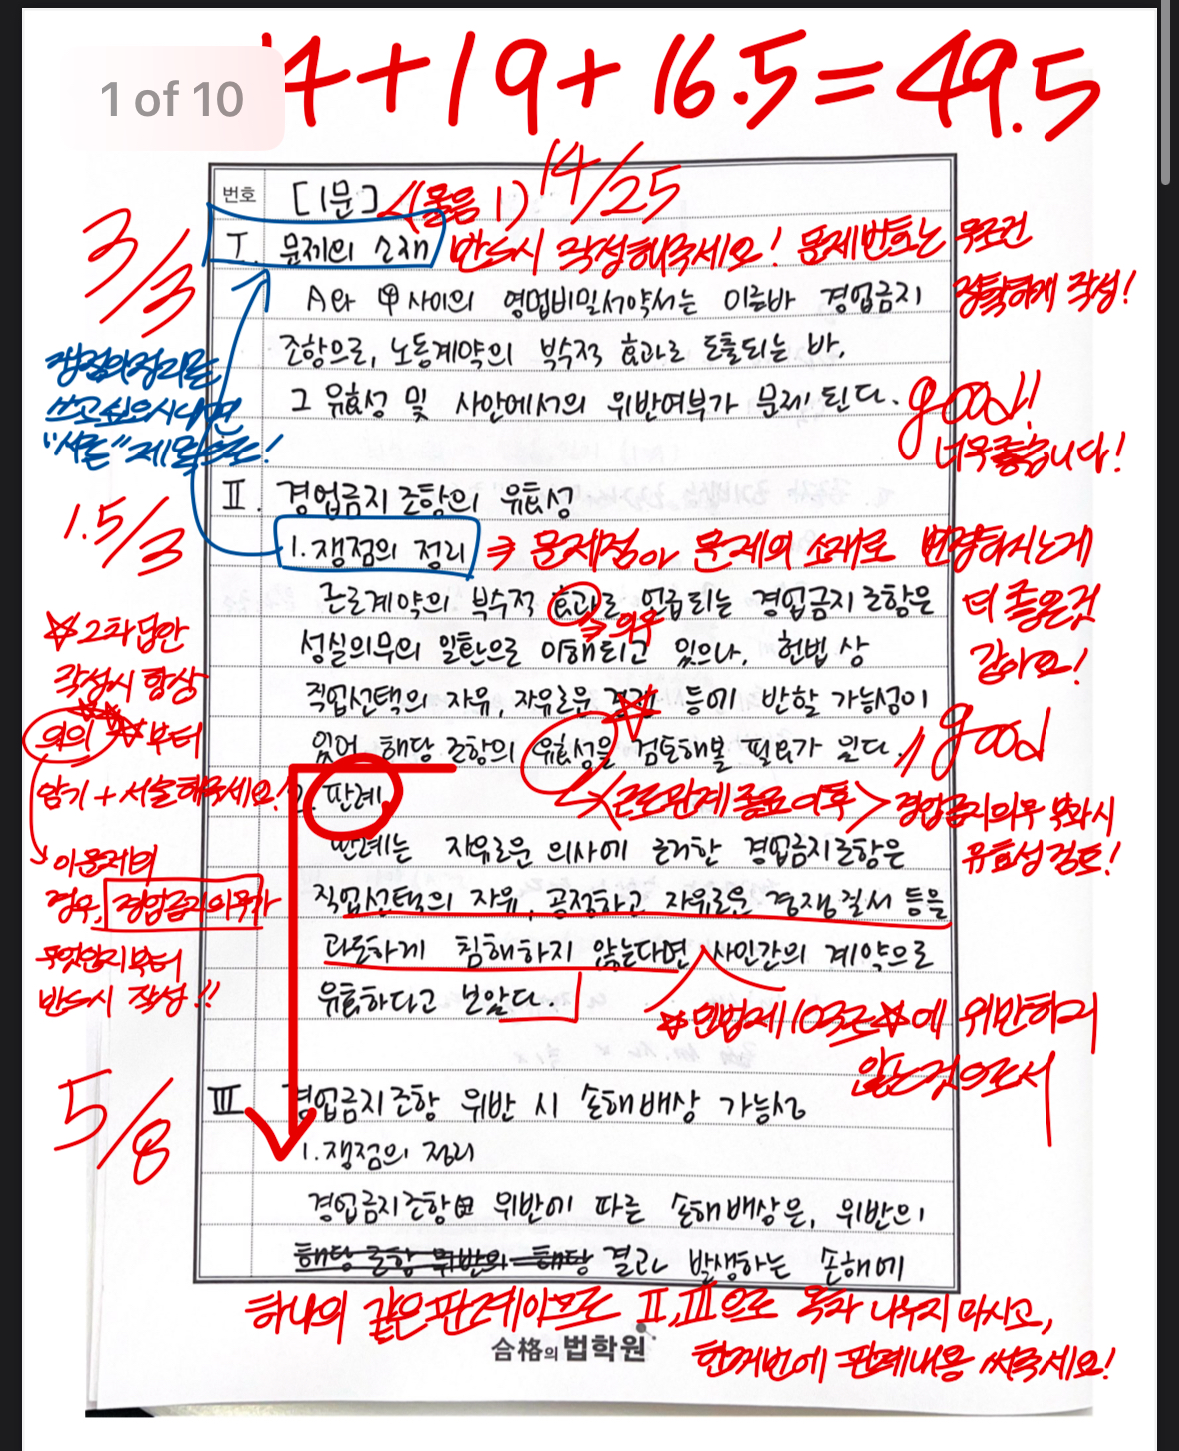 14+19+16.5=49.5
1 of 10
번호 [1문] (물음 1) 14/25
3/3
I. 문제의 소재 반드시 작성해주세요! 문제번호는 무조건
정확하게 작성!
A와 甲 사이의 영업비밀서약서는 이른바 경업금지
조항으로, 노동계약의 부수적 효과로 도출되는 바,
그 유효성 및 사안에서의 위반여부가 문제 된다.
good!!
너무좋습니다!
쟁점의정리를
쓰고싶으시다면
"서론" 제목으로!
1.5/3
II. 경업금지 조항의 유효성
1. 쟁점의 정리 ⇒ 문제점이 문제의 소재로 변경하시는게
더 좋은것
같아요!
근로계약의 부수적 효과로 언급되는 경업금지 조항은
⇒ 의무
성실의무의 일환으로 이해되고 있으나, 헌법 상
직업선택의 자유, 자유로운 경쟁 등에 반할 가능성이
있어 해당 조항의 유효성을 검토해볼 필요가 있다.
good
<근로관계 종료 이후> 경업금지의무 부과시
유효성 검토!
☆2차답안
작성시 항상
의의☆부터
암기 + 서술해주세요!
이 문제의
경우, 경업금지의무가
무엇인지부터
반드시 작성!!
2. 판례
판례는 자유로운 의사에 근거한 경업금지조항은
직업선택의 자유, 공정하고 자유로운 경쟁질서 등을
과도하게 침해하지 않는다면 사인간의 계약으로
유효하다고 보았다.
☆민법제103조☆에 위반하지
않는것으로서
5/8
III 경업금지조항 위반 시 손해배상 가능성
1. 쟁점의 정리
경업금지조항 위반에 따른 손해배상은, 위반의
해당 조항 위반의 해당 결과 발생하는 손해에
하나의 같은판례이므로 II, III으로 목차 나누지 마시고,
한꺼번에 판례내용 써주세요!
合格의 법학원